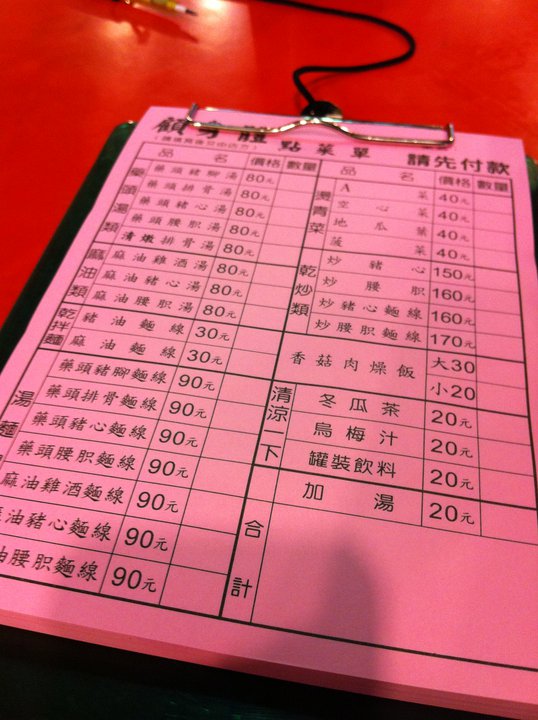 顧身體 點菜單 請先付款
品 名 價格 數量
藥頭湯類
藥頭豬腳湯 80元
藥頭排骨湯 80元
藥頭豬心湯 80元
藥頭腰胑湯 80元
清燉排骨湯 80元
麻油類
麻油雞酒湯 80元
麻油豬心湯 80元
麻油腰胑湯 80元
乾拌麵
豬油麵線 30元
麻油麵線 30元
湯麵
藥頭豬腳麵線 90元
藥頭排骨麵線 90元
藥頭豬心麵線 90元
藥頭腰胑麵線 90元
麻油雞酒麵線 90元
油豬心麵線 90元
油腰胑麵線 90元
品 名 價格 數量
燙青菜
A 菜 40元
空心菜 40元
地瓜葉 40元
菠菜 40元
乾炒類
炒豬心 150元
炒腰胑 160元
炒豬心麵線 160元
炒腰胑麵線 170元
香菇肉燥飯 大30
小20
清涼下
冬瓜茶 20元
烏梅汁 20元
罐裝飲料 20元
加湯 20元
合計